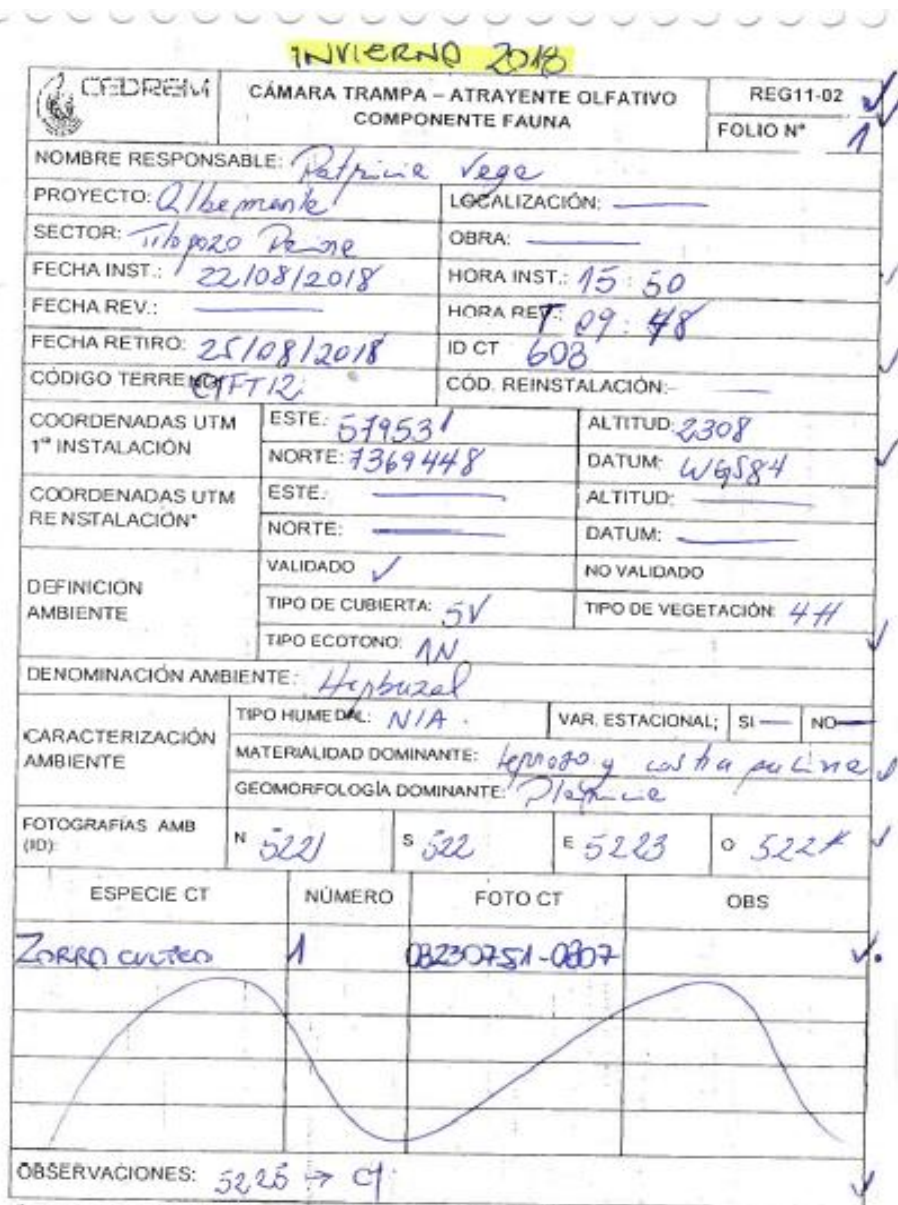 INVIERNO 2018
CEDREM CÁMARA TRAMPA – ATRAYENTE OLFATIVO COMPONENTE FAUNA REG11-02
FOLIO N° 1
NOMBRE RESPONSABLE: Patricia Vega
PROYECTO: Albemarle LOCALIZACIÓN: —
SECTOR: Tilopozo OBRA: —
FECHA INST.: 22/08/2018 HORA INST.: 15:50
FECHA REV.: — HORA REV.: 09:48
FECHA RETIRO: 25/08/2018 ID CT 608
CÓDIGO TERRENO: CTFT12 CÓD. REINSTALACIÓN: —
COORDENADAS UTM 1ª INSTALACIÓN ESTE: 579531 ALTITUD: 2308
NORTE: 7369448 DATUM: WGS84
COORDENADAS UTM RE NSTALACIÓN* ESTE: — ALTITUD: —
NORTE: — DATUM: —
DEFINICION AMBIENTE VALIDADO ✓ NO VALIDADO
TIPO DE CUBIERTA: 5V TIPO DE VEGETACIÓN: 4H
TIPO ECOTONO: 1N
DENOMINACIÓN AMBIENTE: Herbazal
CARACTERIZACIÓN AMBIENTE TIPO HUMEDAL: N/A. VAR. ESTACIONAL; SI — NO —
MATERIALIDAD DOMINANTE: terroso y costra salina
GEOMORFOLOGÍA DOMINANTE: Planicie
FOTOGRAFÍAS AMB (ID): N 5221 S 522 E 5223 O
ESPECIE CT NÚMERO FOTO CT OBS
ZORRO CULPEO 1 08230751-0807
OBSERVACIONES: 5225 → CT.